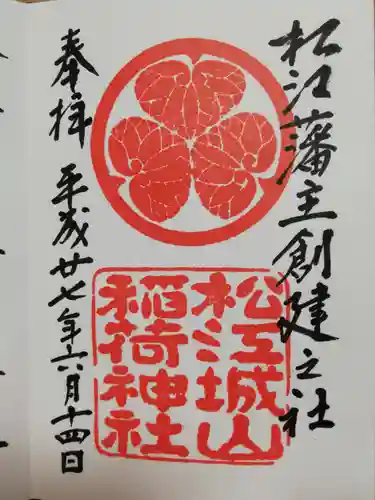 松江藩主創建之社
松江城山
稲荷神社
奉拝
平成廿七年六月十四日